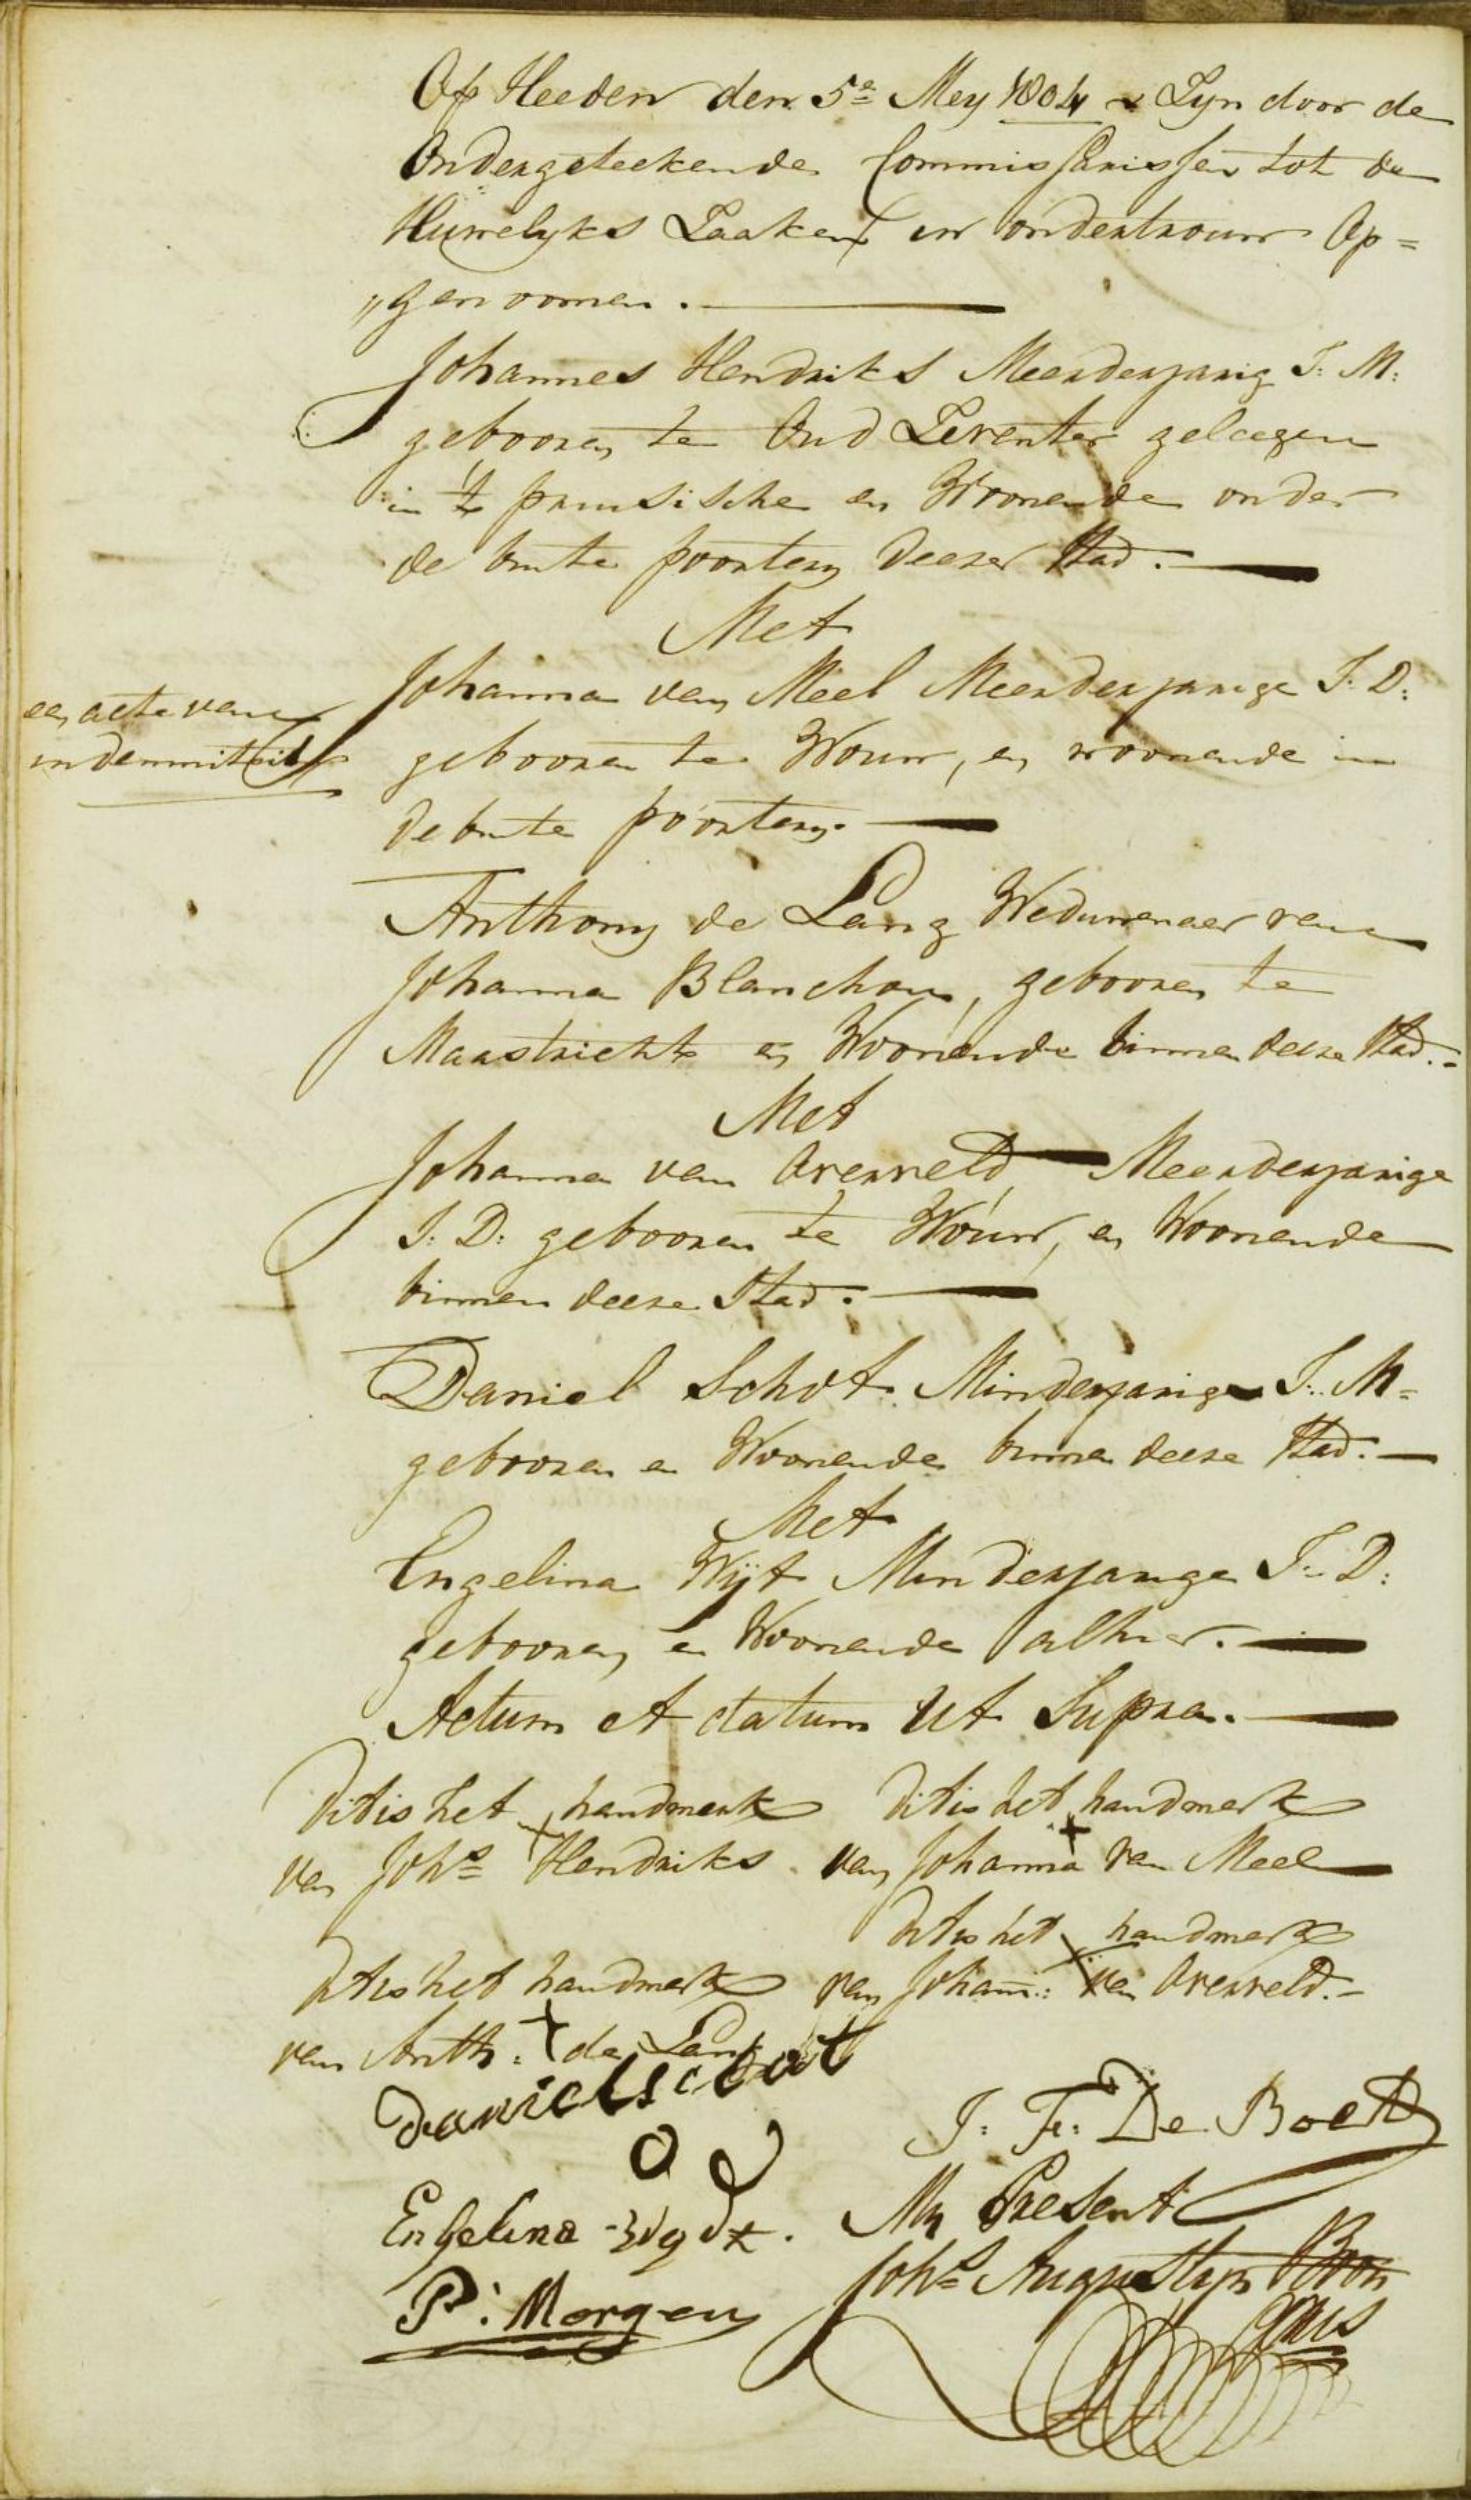 Op Heeden den 5e Mey 1804 Zyn door de
Ondergeteekende Commissarissen tot de
Huwelyks Zaaken in ondertrouw Op=
„genoomen.
Johannes Hendriks Meerderjarig J: M:
gebooren te Oud Leventer geleegen
in 't pruissische en Woonende onder
de buite poorten deezer Stad.
Met
Johanna van Meel Meerderjarige J: D:
een acte van
indemniteit
gebooren te Wouw, en woonende in
de buite poorten.
Anthony de Lang Weduwenaer van
Johanna Blanchou, gebooren te
Maastricht en Woonende binnen deeze Stad.=
Met
Johanna van Overveld Meerderjarige
J: D: gebooren te Wouw, en Woonende
binnen deeze Stad.
Daniel Schot Minderjarige J: M=
gebooren en Woonende binnen deeze Stad.
Met
Engelina Wijt Minderjarige J: D:
gebooren en Woonende alhier.
Actum et datum Ut Supra.
Dit is het handmerk Dit is het handmerk
van Johs Hendriks van Johanna van Meel
Dit is het handmerk
Dit is het handmerk van Johan: van Overveld.
van Anth: de Lang
Daniel scout
J: Fr: De Boet
Engelina
Mij Present
P: Morgen
Johs Augustyn